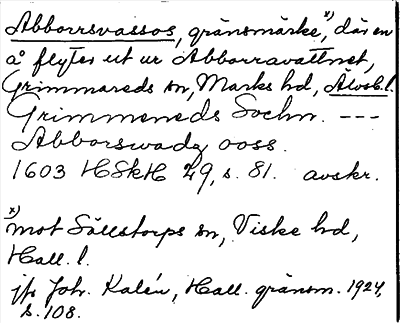 Abborrsvassos, gränsmärke x), där en
å flyter ut ur Abborravattnet,
Grimmareds sn, Marks hd, Älvsb. l.
Grimmereds Sochn. ---
Abborswadz ooss.
1603 HSkH 29, s. 81. avskr.
x) mot Sällstorps sn, Viske hd,
Hall. l.
jfr Joh. Kalén, Hall. gränsm. 1924,
s. 108.